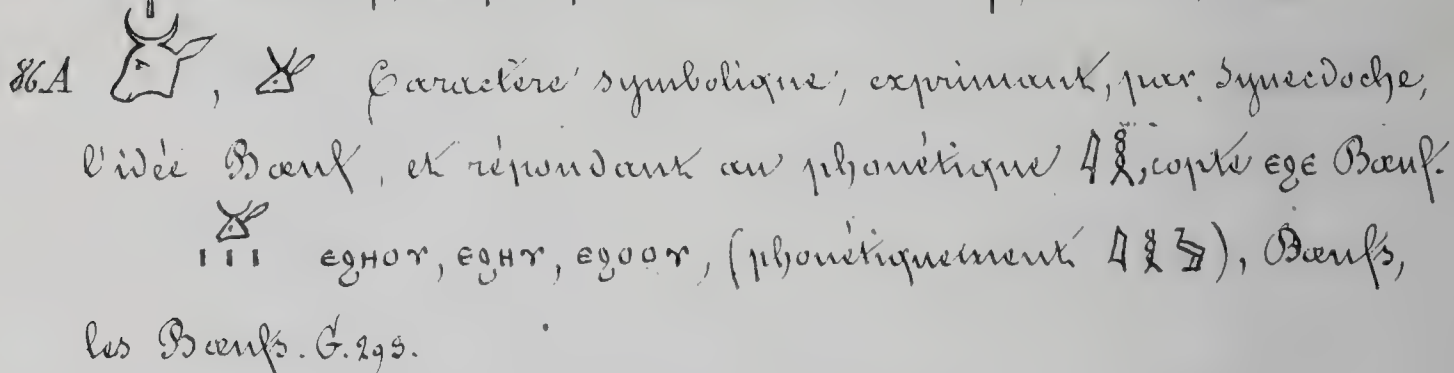 86A 𓃾, 𓃾 Caractère symbolique, exprimant, par Synecdoche,
l'idée Bœuf, et répondant au phonétique 𓇋𓎛, copte ⲉϩⲉ Bœuf.
𓃾 ı ı ı ⲉϩⲏⲟⲩ, ⲉϩⲏⲩ, ⲉϩⲟⲟⲩ, (phonétiquement 𓇋𓎛), Bœufs,
les Bœufs. G. 293.